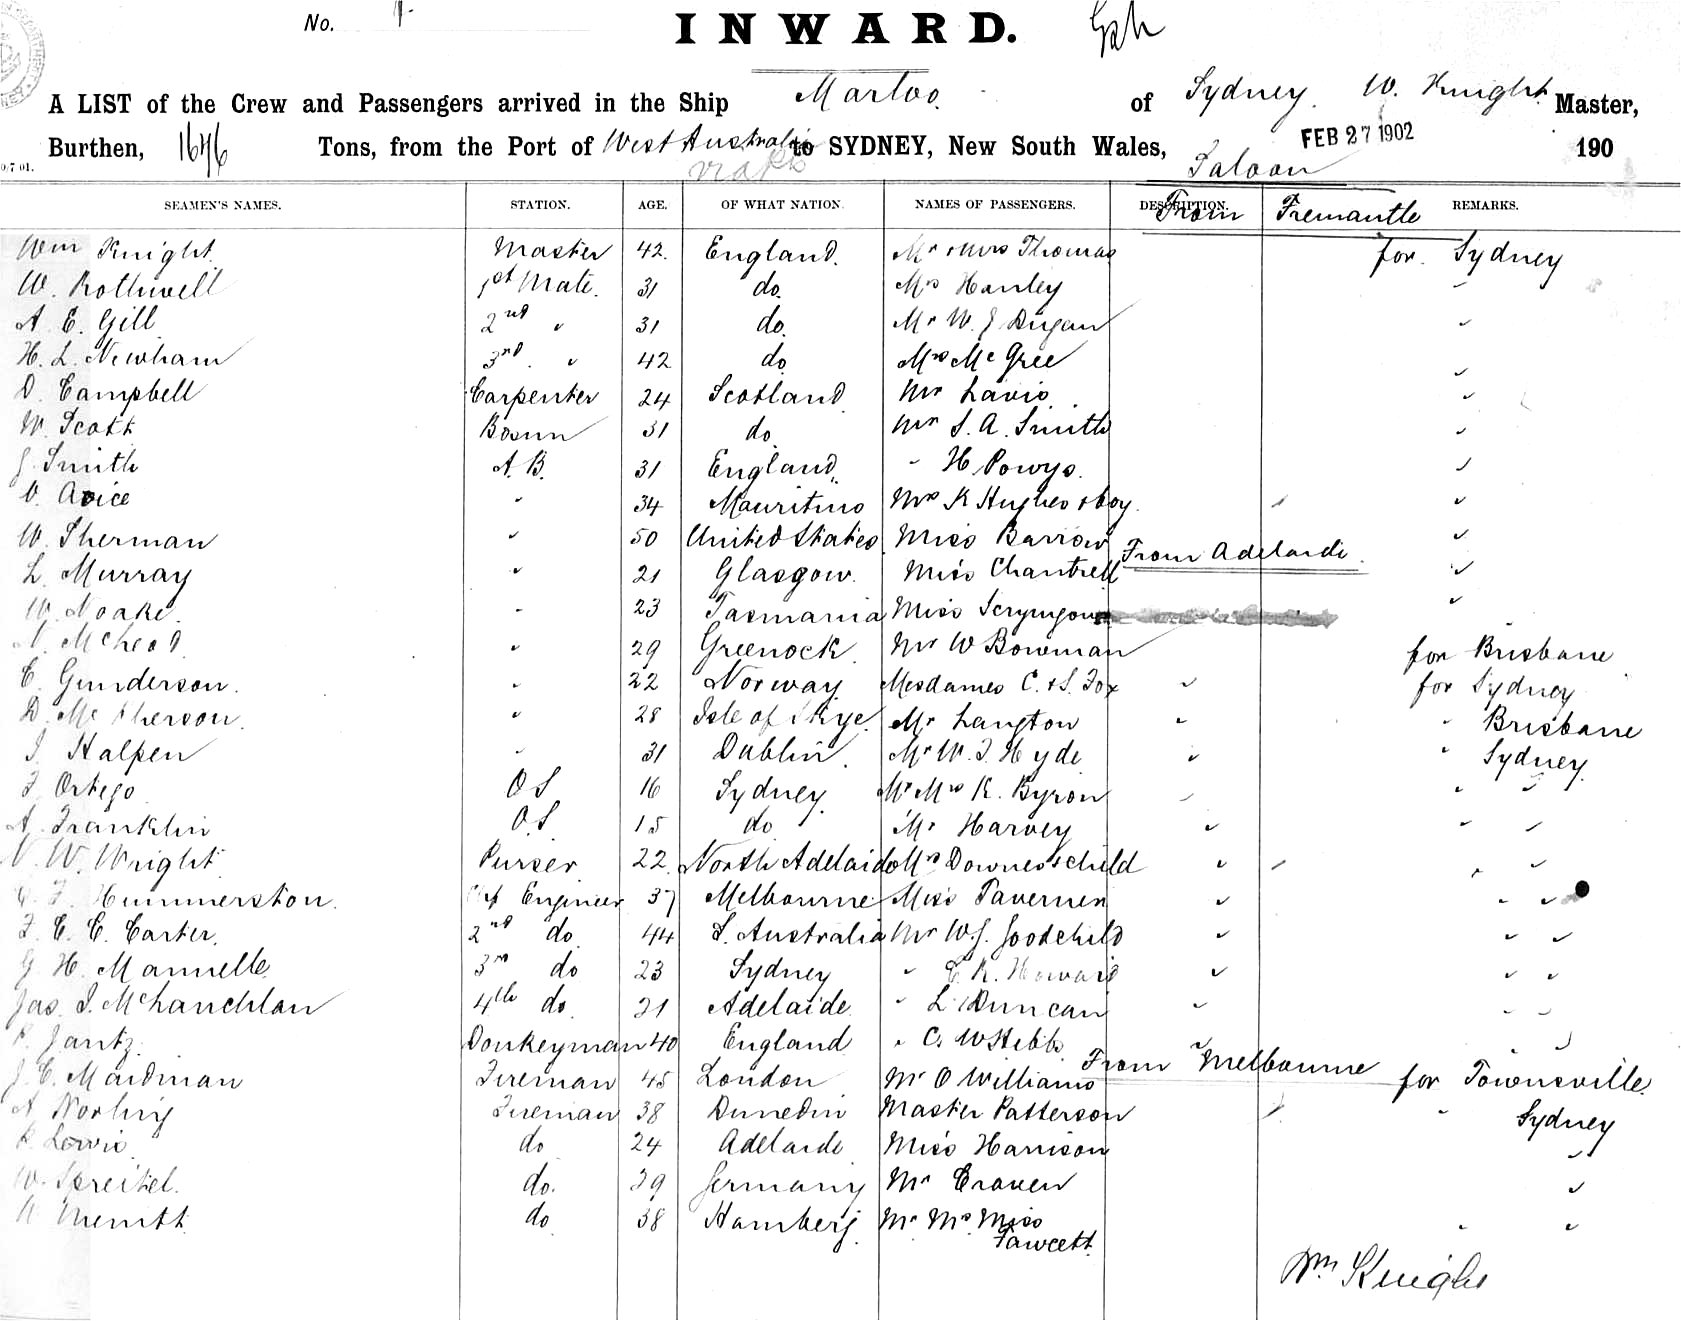 No. 1.
INWARD.
A LIST of the Crew and Passengers arrived in the Ship Marloo of Sydney. W. Knight Master,
Burthen, 1646 Tons, from the Port of West Australia to SYDNEY, New South Wales, FEB 27 1902 190
via ports
Saloon
SEAMEN'S NAMES. STATION. AGE. OF WHAT NATION. NAMES OF PASSENGERS. DESCRIPTION. REMARKS.
From Fremantle
Wm Knight Master 42. England. Mr & Mrs Thomas for Sydney
W. Rothwell 1st Mate. 31 do. Mrs Hanley "
A. E. Gill 2nd " 31 do. Mr W. J Dugan "
H. L. Newham 3rd " 42 do Mrs McGree "
D. Campbell Carpenter 24 Scotland Mr Lavis "
W. Scott Bosun 31 do Mr S. A. Smith "
J. Smith A.B. 31 England " H. Powys. "
V. Avice " 34 Mauritius Mrs K Hughes & boy. "
W. Sherman " 50 United States Miss Barrow "
From Adelaide.
L. Murray " 21 Glasgow. Miss Chantrell "
W. Noake. " 23 Tasmania Miss Scrymgour "
N. McLeod " 29 Greenock Mr W Bowman for Brisbane
C. Gunderson. " 22 Norway Mesdames C. & S. Fox " for Sydney
D. McPherson. " 28 Isle of Skye Mr Langton " " Brisbane
J. Halpen " 31 Dublin. Mr W. J. Hyde " " Sydney
F. Ortego O S 16 Sydney Mr Mrs K. Byron " " "
A. Franklin O.S 15 do Mr Harvey " " "
N. W. Wright Purser 22 North Adelaide Mrs Downes & child " " "
Hummerston. Engineer 37 Melbourne Miss Taverner " " "
F. C. C. Carter. 2nd do 44 S. Australia Mr W. J. Goodchild " " "
G. H. Mannelle 3rd do 23 Sydney " C. R. Howard " " "
Jas. J. McLauchlan 4th do 21 Adelaide " L. Duncan " " "
P. Jantz. Donkeyman 40 England " C. W Stebb " " "
From Melbourne
J. C. Maidman Fireman 45 London Mr O Williams for Townsville.
A Norling Fireman 38 Dunedin Master Patterson " Sydney
Lewis do 24 Adelaide Miss Harrison "
W. Spreitel. do. 29 Germany Mr Craven "
Merritt do 38 Hamberg. Mr Mrs Miss " "
Fawcett
Wm Knight